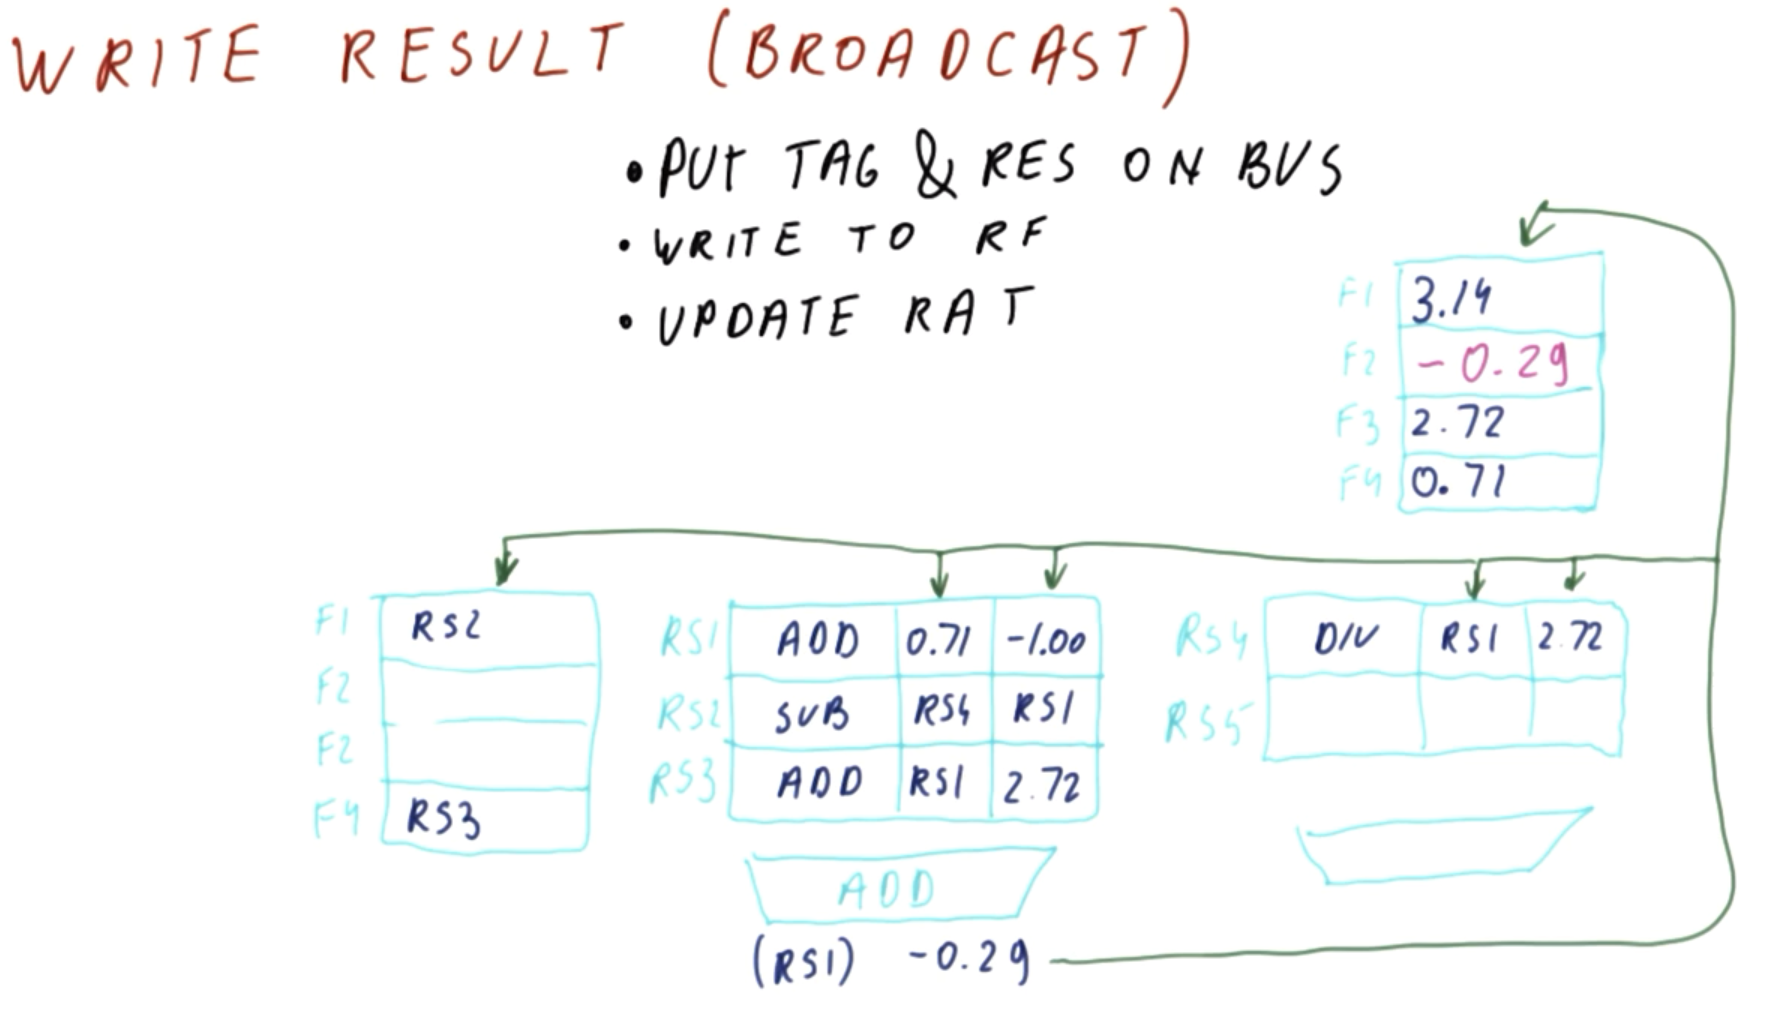 WRITE RESULT (BROADCAST)
• PUT TAG & RES ON BUS
• WRITE TO RF
• UPDATE RAT
F1 3.14
F2 -0.29
F3 2.72
F4 0.71
F1 RS2
F2
F2
F4 RS3
RS1 ADD 0.71 -1.00
RS2 SUB RS4 RS1
RS3 ADD RS1 2.72
ADD
(RS1) -0.29
RS4 DIV RS1 2.72
RS5